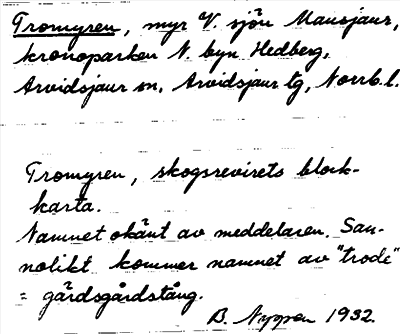 Tromyren, myr V. sjön Mausjaur,
kronoparken N. byn Hedberg,
Arvidsjaur sn, Arvidsjaur tg, Norrb. l.
Tromyren, skogsrevirets block-
karta.
Namnet okänt av meddelaren. San-
nolikt kommer namnet av "trode"
= gärdsgårdstång.
B. Nygren 1932.